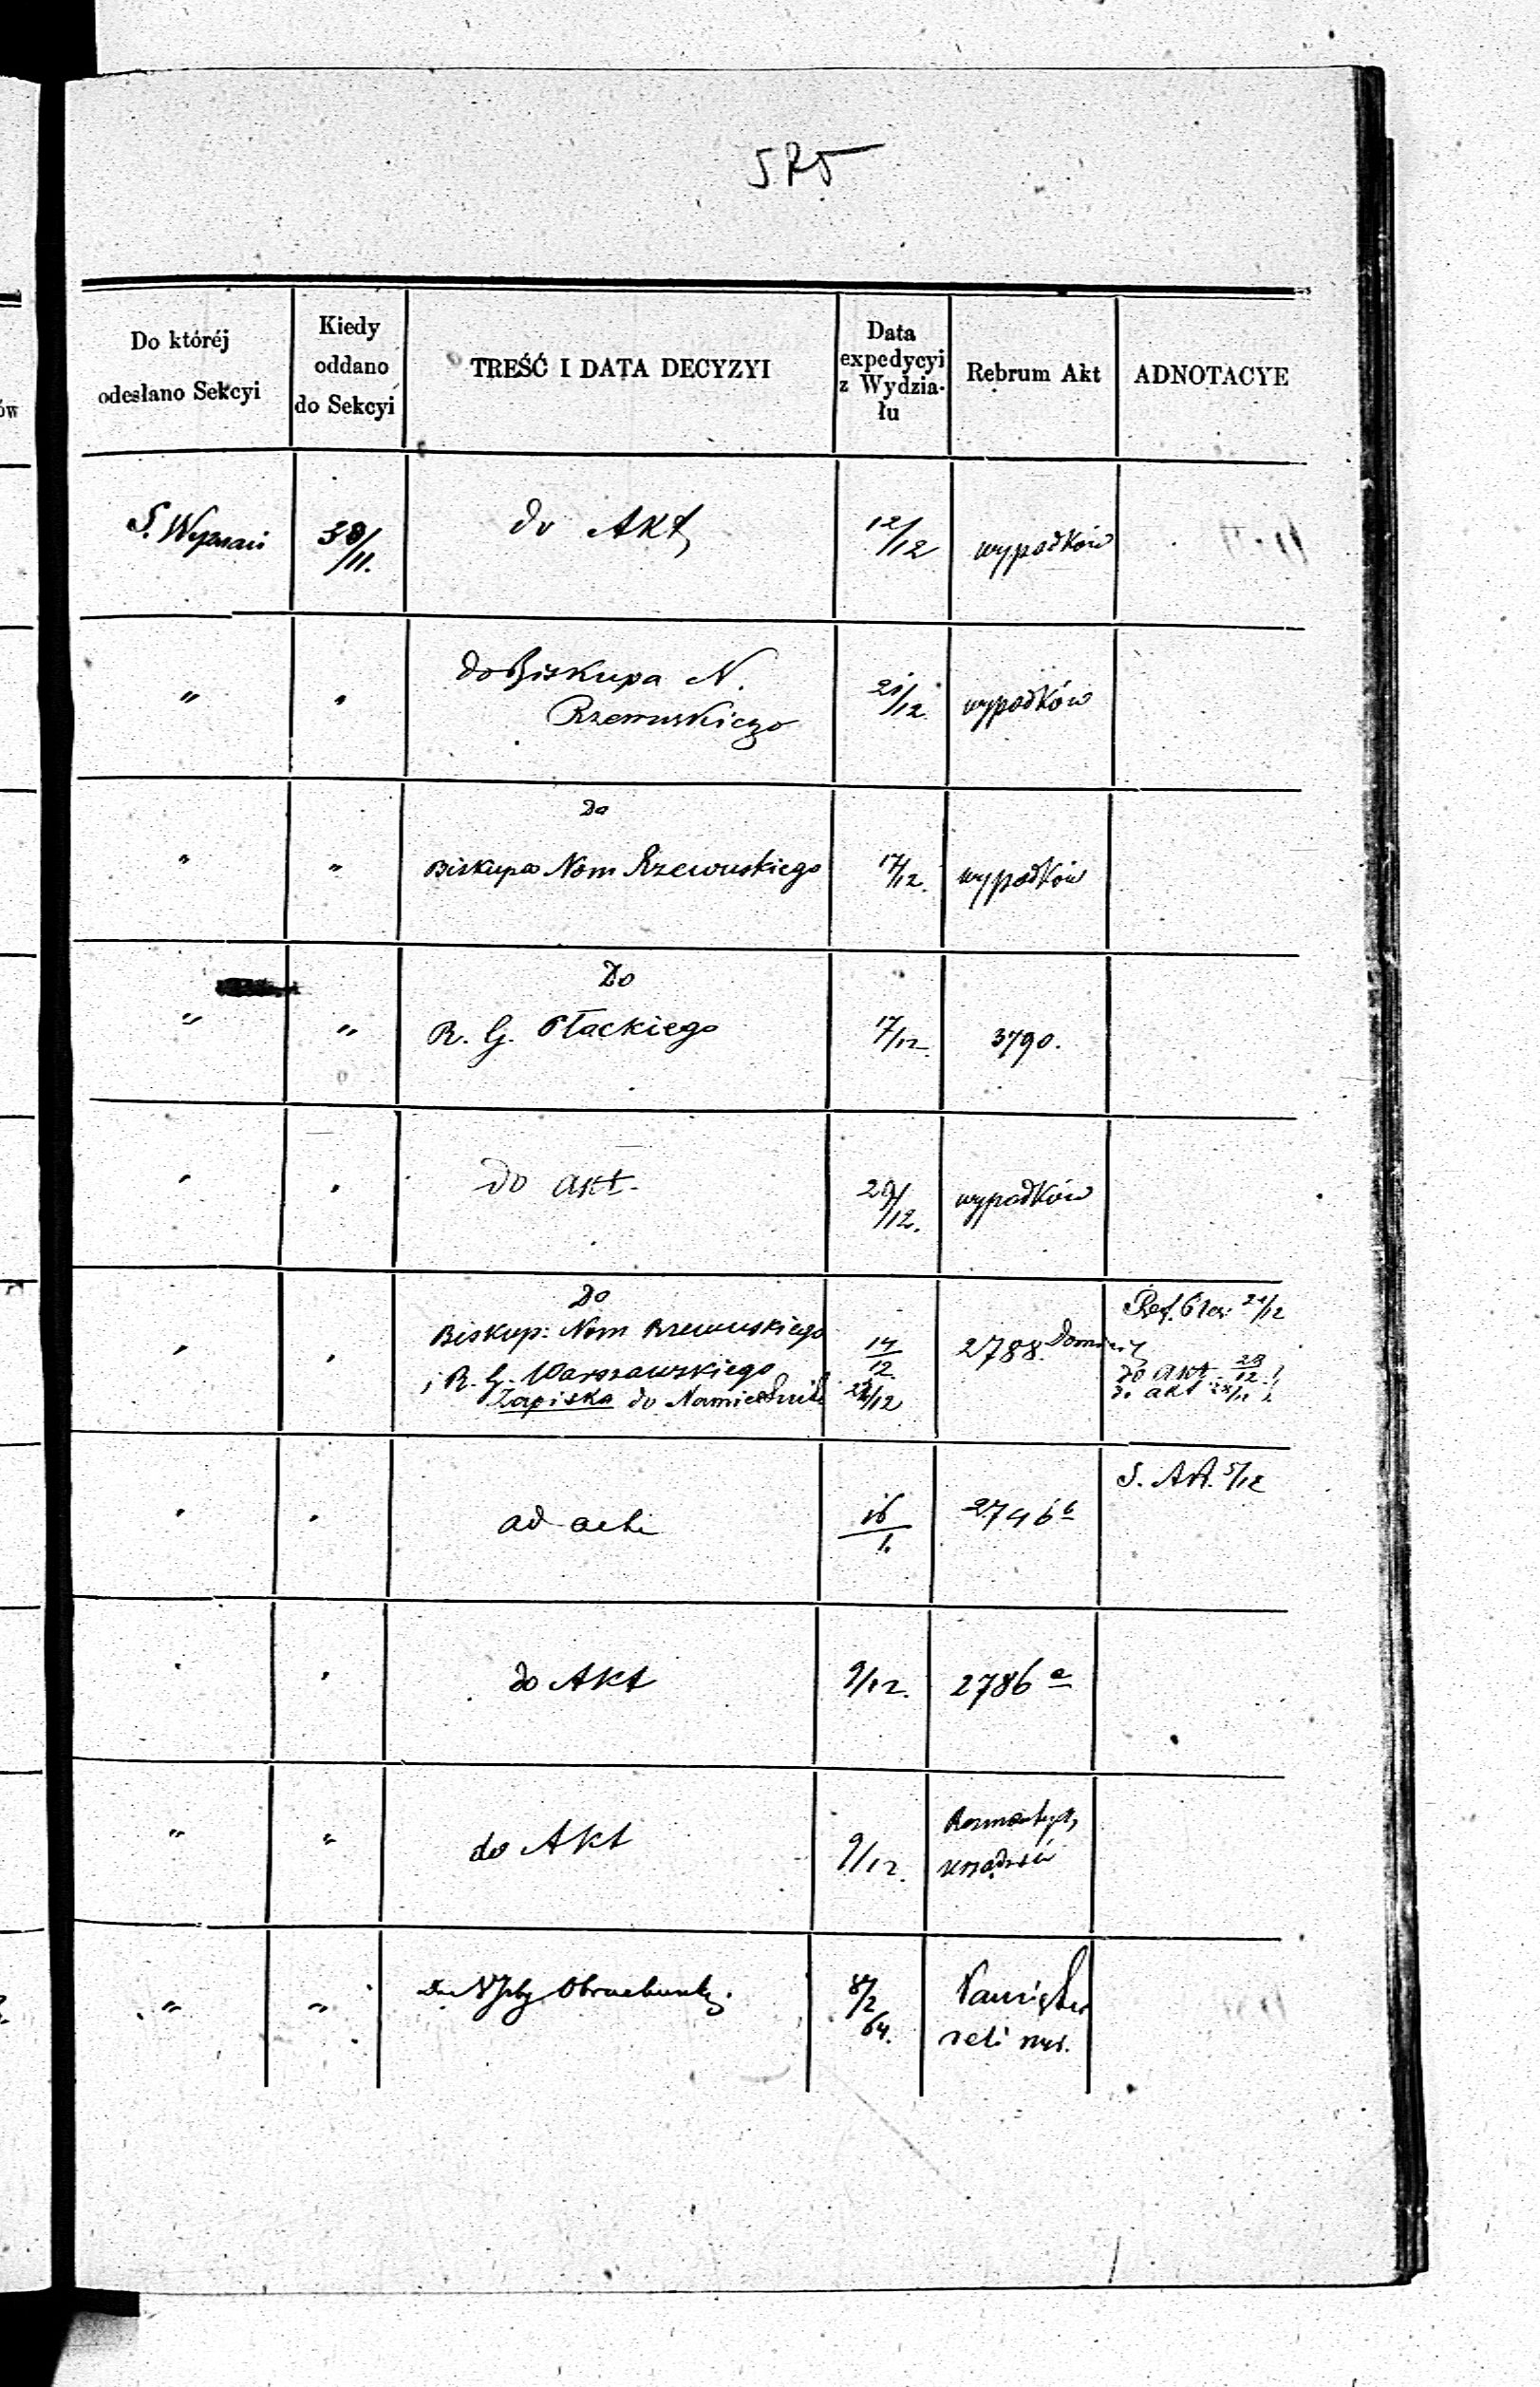 Do któréj
odesłano Sekcyi
Kiedy
oddano
do Sekcyi
TREŚĆ I DATA DECYZYI
Data
expedycyi
z Wydzia-
łu
Rebrum Akt
ADNOTACYE
S. Wyznań
30/11.
do Akt
12/12
wypadków
"
"
do Biskupa N.
Rzewuskiego
21/12.
wypadków
"
"
Do
Biskupa Nom Rzewuskiego
17/12.
wypadków
"
"
Do
R. G. Płackiego
17/12.
3790.
"
"
do akt.
29/12.
wypadków
"
"
Do
Biskup: Nom Rzewuskiego
i R. G. Warszawskiego
Zapiska do Namiestnika
14/12.
24/12
2788.
Ref. 21/12
do akt 28/12
do akt
"
"
ad acta
16/1.
2746 b
S. 5/12
"
"
do Akt
9/12.
2786 a
"
"
do Akt
9/12.
"
"
Do Izby Obrachunk.
8/2
64.